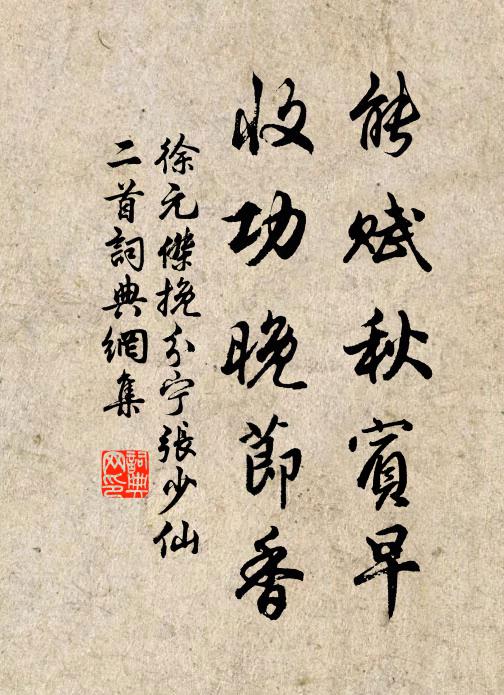 能賦秋賓早
收功晚節香
徐元傑挽分宁張少仙
二首詞典網集
詞典網印